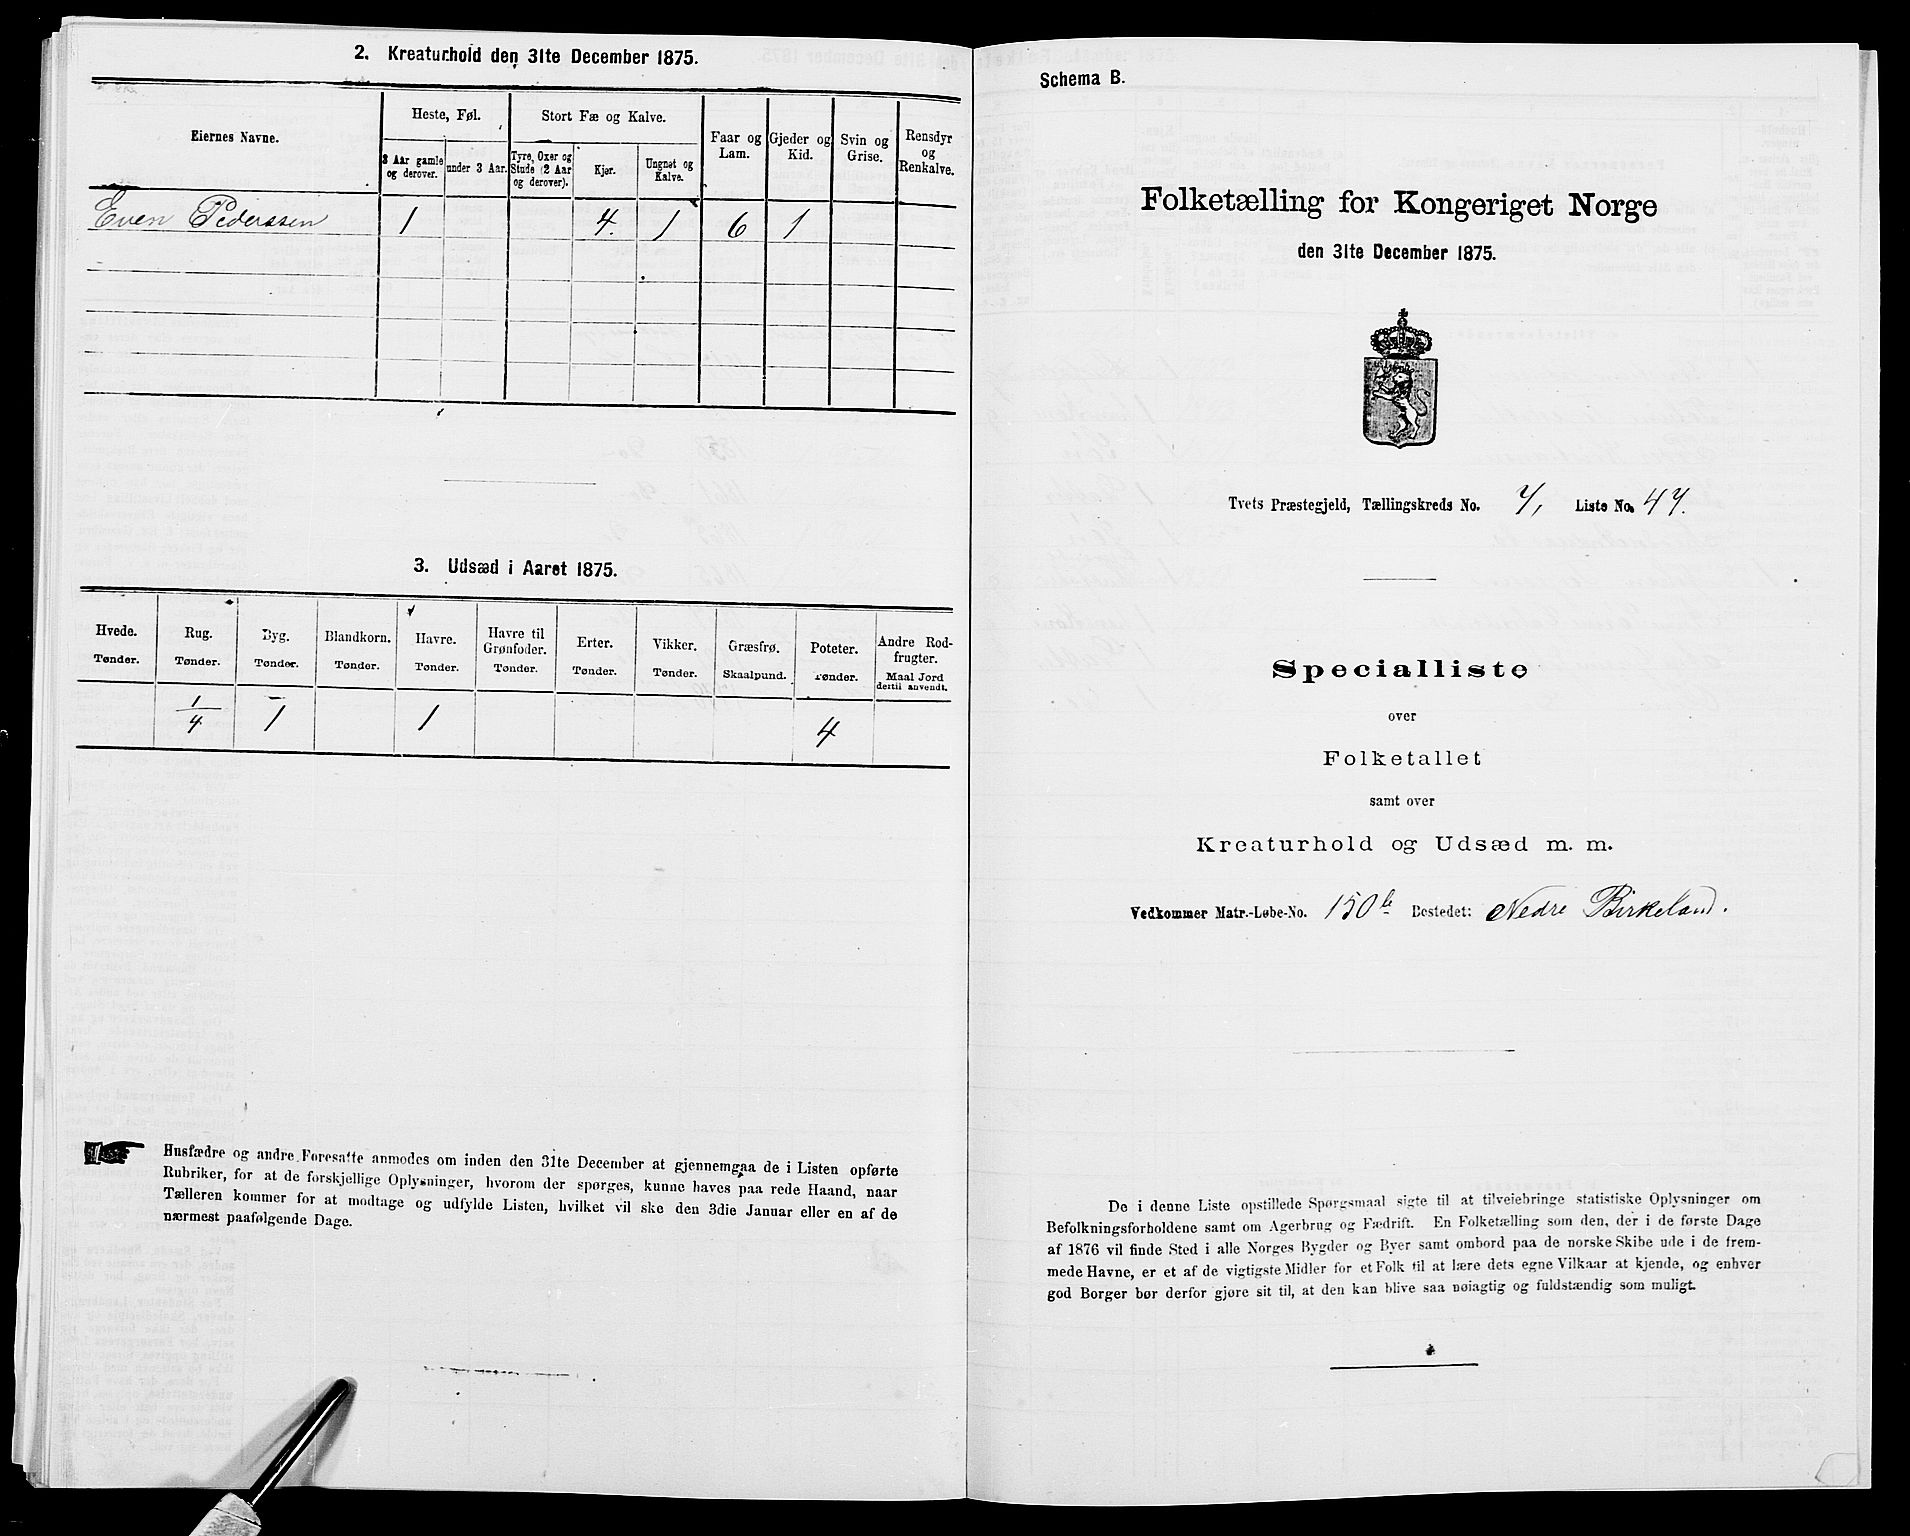 2. Kreaturhold den 31te December 1875.
Eiernes Navne.
Heste, Føl.
Stort Fæ og Kalve.
Faar og Lam.
Gjeder og Kid.
Svin og Grise.
Rensdyr og Renkalve.
3 Aar gamle og derover.
under 3 Aar.
Tyre, Oxer og Stude (2 Aar og derover).
Kjør.
Ungnøt og Kalve.
Even Pederssen 1 4. 1 6 1
3. Udsæd i Aaret 1875.
Hvede. Tønder.
Rug. Tønder.
Byg. Tønder.
Blandkorn. Tønder.
Havre. Tønder.
Havre til Grønfoder. Tønder.
Erter. Tønder.
Vikker. Tønder.
Græsfrø. Skaalpund.
Poteter. Tønder.
Andre Rodfrugter. Maal Jord dertil anvendt.
1/4 1 1 4
Husfædre og andre Foresatte anmodes om inden den 31te December at gjennemgaa de i Listen opførte
Rubriker, for at de forskjellige Oplysninger, hvorom der spørges, kunne haves paa rede Haand, naar
Tælleren kommer for at modtage og udfylde Listen, hvilket vil ske den 3die Januar eller en af de
nærmest paafølgende Dage.
Schema B.
Folketælling for Kongeriget Norge
den 31te December 1875.
Tvets Præstegjeld, Tællingskreds No. 7, Liste No. 47.
Specialliste
over
Folketallet
samt over
Kreaturhold og Udsæd m. m.
Vedkommer Matr.-Løbe-No. 150 b Bostedet: Nedre Birkeland.
De i denne Liste opstillede Spørgsmaal sigte til at tilveiebringe statistiske Oplysninger om
Befolkningsforholdene samt om Agerbrug og Fædrift. En Folketælling som den, der i de første Dage
af 1876 vil finde Sted i alle Norges Bygder og Byer samt ombord paa de norske Skibe ude i de frem-
mede Havne, er et af de vigtigste Midler for et Folk til at lære dets egne Vilkaar at kjende, og enhver
god Borger bør derfor gjøre sit til, at den kan blive saa nøiagtig og fuldstændig som muligt.